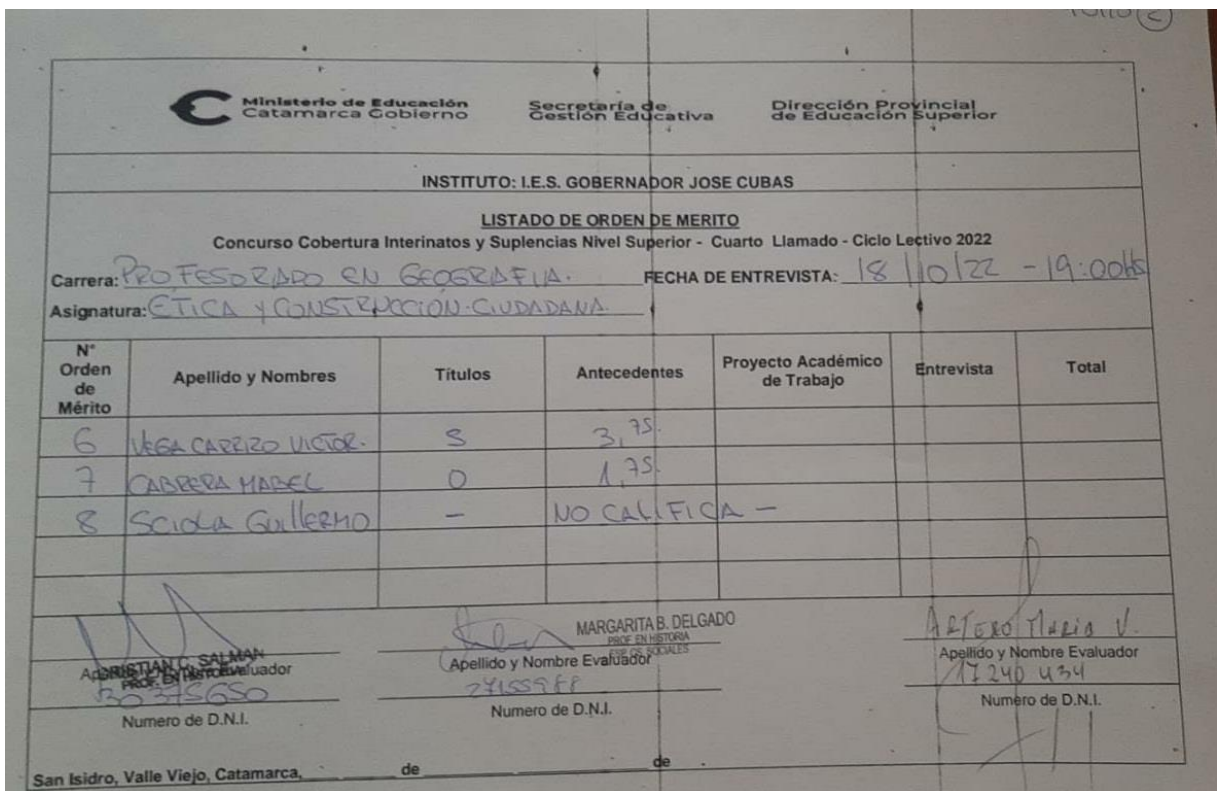 Ministerio de Educación
Catamarca Gobierno
Secretaría de
Gestión Educativa
Dirección Provincial
de Educación Superior
INSTITUTO: I.E.S. GOBERNADOR JOSE CUBAS
LISTADO DE ORDEN DE MERITO
Concurso Cobertura Interinatos y Suplencias Nivel Superior - Cuarto Llamado - Ciclo Lectivo 2022
Carrera: PROFESORADO EN GEOGRAFIA. FECHA DE ENTREVISTA: 18/10/22 - 19:00HS
Asignatura: ETICA Y CONSTRUCCIÓN CIUDADANA.
N° Orden de Mérito Apellido y Nombres Títulos Antecedentes Proyecto Académico de Trabajo Entrevista Total
6 VEGA CARRIZO VICTOR. 5 3,75.
7 CABRERA MABEL 0 1,75.
8 SCIOLA GUILLERMO - NO CALIFICA -
MARGARITA B. DELGADO
PROF. EN HISTORIA
ARTERO MARIA V.
SALMAN
Evaluador
Apellido y Nombre Evaluador
Apellido y Nombre Evaluador
30375650
17240434
Numero de D.N.I.
Numero de D.N.I.
Numero de D.N.I.
San Isidro, Valle Viejo, Catamarca, de de